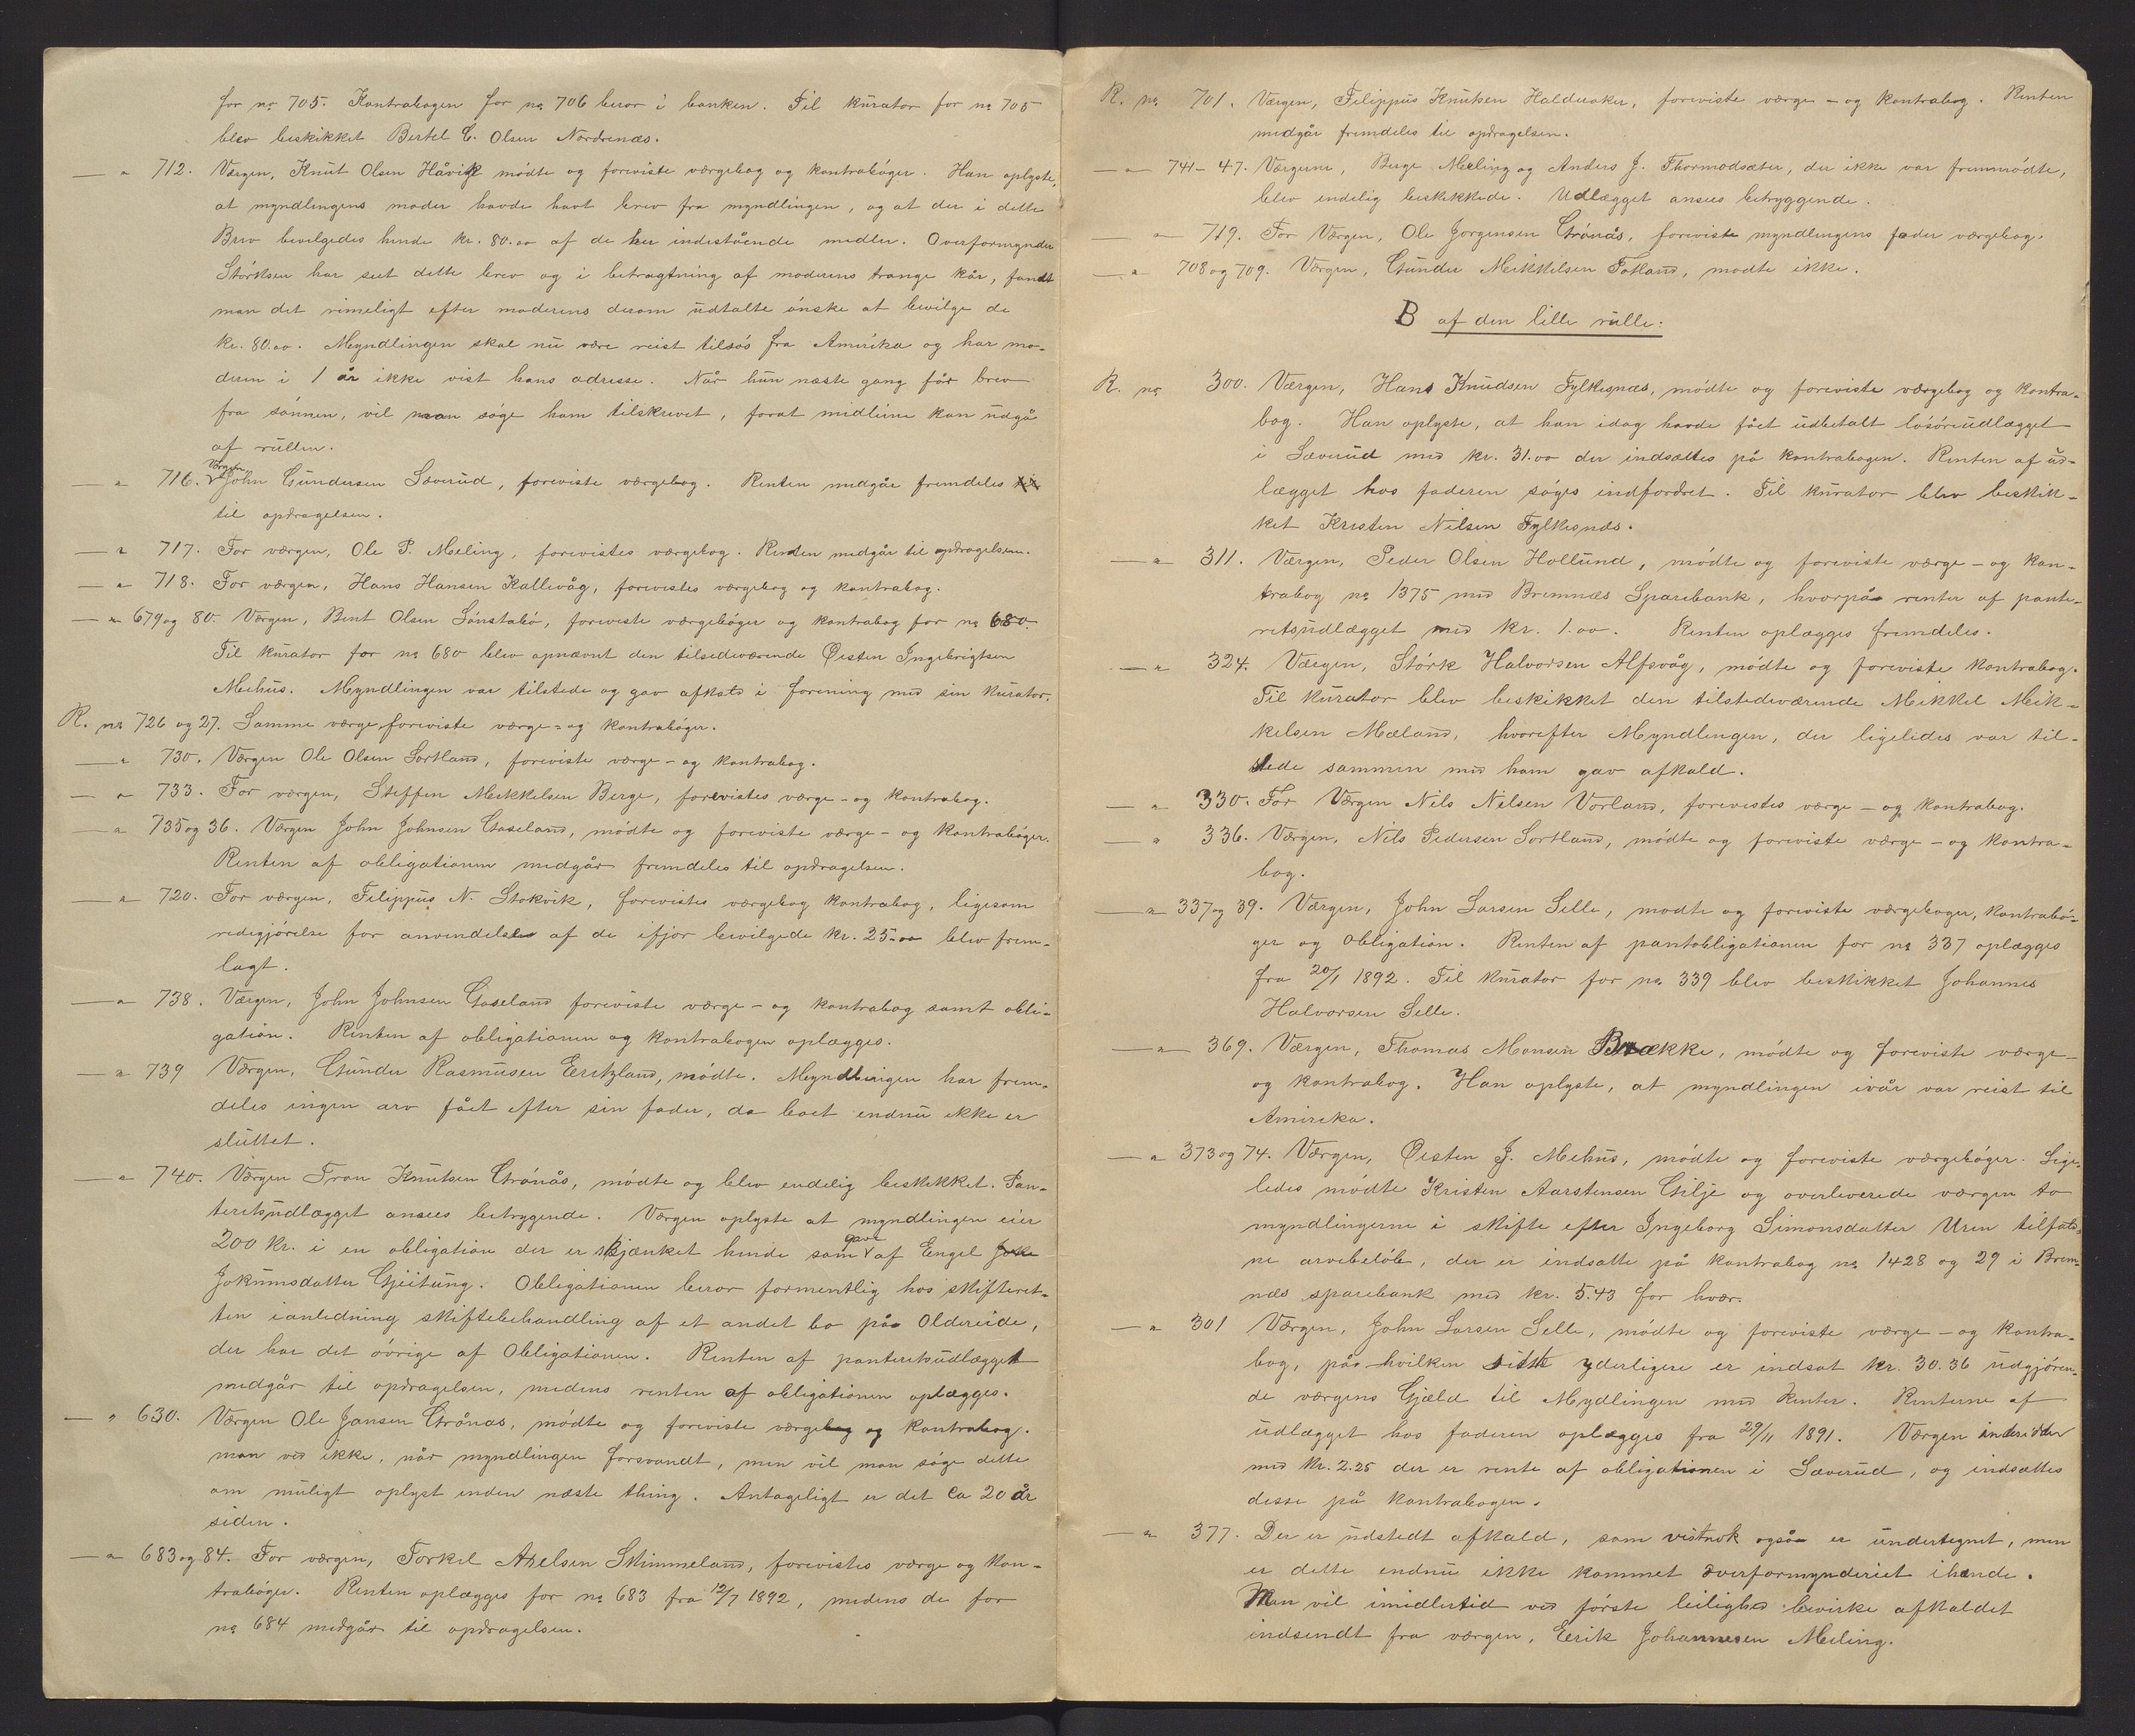 for nº 705. Kontrabogen for nº 706 beror i banken. Til kurator for nº 705
blev beskikket Bertel C. Olsen Nordrenæs.
— " 712. Værgen, Knut Olsen Håvik mødte og foreviste værgebog og kontrabøger. Han oplyste,
at myndlingens moder havde havt brev fra myndlingen, og at der i dette
Brev bevilgedes hende kr. 80.00 af de her indestående midler. Overformynder
Størksen har seet dette brev og i betragtning af moderens trange kår, fandt
man det rimeligt efter moderens derom udtalte ønske at bevilge de
kr. 80.00. Myndlingen skal nu være reist tilsøs fra Amirika og har mo-
deren i 1 år ikke vist hans adresse. Når hun næste gang får brev
fra sønnen, vil man søge ham tilskrevet, forat midlerne kan udgå
af rullen.
— " 716. Værgen John Gundersen Sæverud, foreviste værgebog. Renten medgår fremdeles
til opdragelsen.
— " 717. For værgen, Ole P. Meling, forevistes værgebog. Renten medgår til opdragelsen.
— " 718. For værgen, Hans Hansen Kallevåg, forevistes værgebog og kontrabog.
— " 679 og 80. Værgen, Bent Olsen Sønstabø, foreviste værgebøger og kontrabog for nº 680.
Til kurator for nº 680 blev opnævnt den tilstedeværende Øisten Ingebrigtsen
Mehus. Myndlingen var tilstede og gav afkald i forening med sin kurator.
R. nº 726 og 27. Samme værge foreviste værge- og kontrabøger.
— " 730. Værgen Ole Olsen Sortland, foreviste værge- og kontrabog.
— " 733. For værgen, Steffen Mikkelsen Berge, forevistes værge- og kontrabog.
— " 735 og 36. Værgen John Johnsen Gaseland, mødte og foreviste værge- og kontrabøger.
Renten af obligationen medgår fremdeles til opdragelsen.
— " 720. For værgen, Filippus N. Stokvik, forevistes værgebog kontrabog, ligesom
redegjørelse for anvendelse af de ifjor bevilgede kr. 25.00 blev frem-
lagt.
— " 738. Værgen, John Johnsen Gaseland foreviste værge- og kontrabog samt obli-
gation. Renten af obligationen og kontrabogen oplægges.
— " 739 Værgen, Gunder Rasmusen Eritzland, mødte. Myndlingen har frem-
deles ingen arv fået efter sin fader, da boet endnu ikke er
sluttet.
— " 740. Værgen Tron Knutsen Grønås, mødte og blev endelig beskikket. Pan-
teretsudlægget ansees betrygende. Værgen oplyste at myndlingen eier
200 kr. i en obligation der er skjænket hende som gave af Engel
Jokumsdatter Gjeitung. Obligationen beror formentlig hos skifteret-
ten ianledning skiftebehandling af et andet bo på Oldereide,
der har det øvrige af Obligationen. Renten af panteretsudlægget
medgår til opdragelsen, medens renten af obligationen oplægges.
— " 630. Værgen Ole Jansen Grønas, mødte og foreviste værgebog og kontrabog.
man ved ikke, når myndlingen forsvandt, men vil man søge dette
om muligt oplyst inden næste thing. Antageligt er det Ca 20 år
siden.
— " 683 og 84. For værgen, Torkel Axelsen Skimmeland, forevistes værge og kon-
trabøger. Renten oplægges for nº 683 fra 12/7 1892, medens de for
nº 684 medgår til opdragelsen.
R. nº 701. Værgen, Filippus Knutsen Halderaker, foreviste værge- og kontrabog. Renten
medgår fremdeles til opdragelsen.
— " 741-47. Værgerne, Berge Meling og Anders J. Thormodsæter, der ikke var fremmødte,
blev endelig beskikkede. Udlægget ansees betryggende.
— " 719. For Værgen, Ole Jørgensen Grønås, foreviste myndlingens fader værgebog.
— " 708 og 709. Værgen, Gunder Mikkelsen Totland, mødte ikke.
B af den lille rulle:
R. nº 300. Værgen, Hans Knudsen Fylkesnæs, mødte og foreviste værgebog og kontra-
bog. Han oplyste, at han idag havde fået udbetalt løsøreudlægget
i Sæverud med kr. 31.00 der indsættes på kontrabogen. Renten af ud-
lægget hos faderen søges indfordret. Til kurator blev beskik-
ket Kristen Nilsen Fylkesnæs.
— " 311. Værgen, Peder Olsen Hollund, mødte og foreviste værge- og kon-
trabog nº 1375 med Bremnæs Sparebank, hvorpå renter af pante-
retsudlægget med kr. 1.00. Renten oplægges fremdeles.
— " 324. Værgen, Størk Halvorsen Alfsvåg, mødte og foreviste kontrabog.
Til kurator blev beskikket den tilstedeværende Mikkel Mik-
kelsen Mæland, hvorefter Myndlingen, der ligeledes var til-
stede sammen med ham gav afkald.
— " 330. For Værgen Nils Nilsen Vorland, forevistes værge- og kontrabog.
— " 336. Værgen, Nils Pedersen Sortland, mødte og foreviste værge- og kontra-
bog.
— " 337 og 39. Værgen, John Larsen Selle, mødte og foreviste værgebøger, kontrabø-
ger og Obligation. Renten af pantobligationen for nº 337 oplægges
fra 20/1 1892. Til kurator for nº 339 blev beskikket Johannes
Halvorsen Selle.
— " 369. Værgen, Thomas Monsen Brække, mødte og foreviste værge-
og kontrabog. Han oplyste, at myndlingen ivår var reist til
Amirika.
— " 373 og 74. Værgen, Øisten J. Mehus, mødte og foreviste værgebøger. Lige-
ledes mødte Kristen Aarstensen Gilje og overleverede værgen to
myndlingerne i skifte efter Ingeborg Simonsdatter Uren tilfald-
ne arvebeløb, der er indsatte på kontrabog nº 1428 og 29 i Brem-
næs sparebank med kr. 5.43 for hver.
— " 301 Værgen, John Larsen Selle, mødte og foreviste værge- og kontra-
bog, på hvilken sidste yderligere er indsat kr. 30.36 udgjøren-
de værgens Gjæld til Mydlingen med Renter. Renterne af
udlægget hos faderen oplægges fra 29/11 1891. Værgen
med kr. 2.25 der er rente af obligationen i Sæverud, og indsættes
desse på kontrabogen.
— " 377. Der er udstedt afkald, som vistnok også er undertegnet, men
er dette endnu ikke kommet overformynderiet ihænde.
Man vil imidlertid ved første leilighed bevirke afkaldet
indsendt fra værgen, Eerik Johannesen Meling.